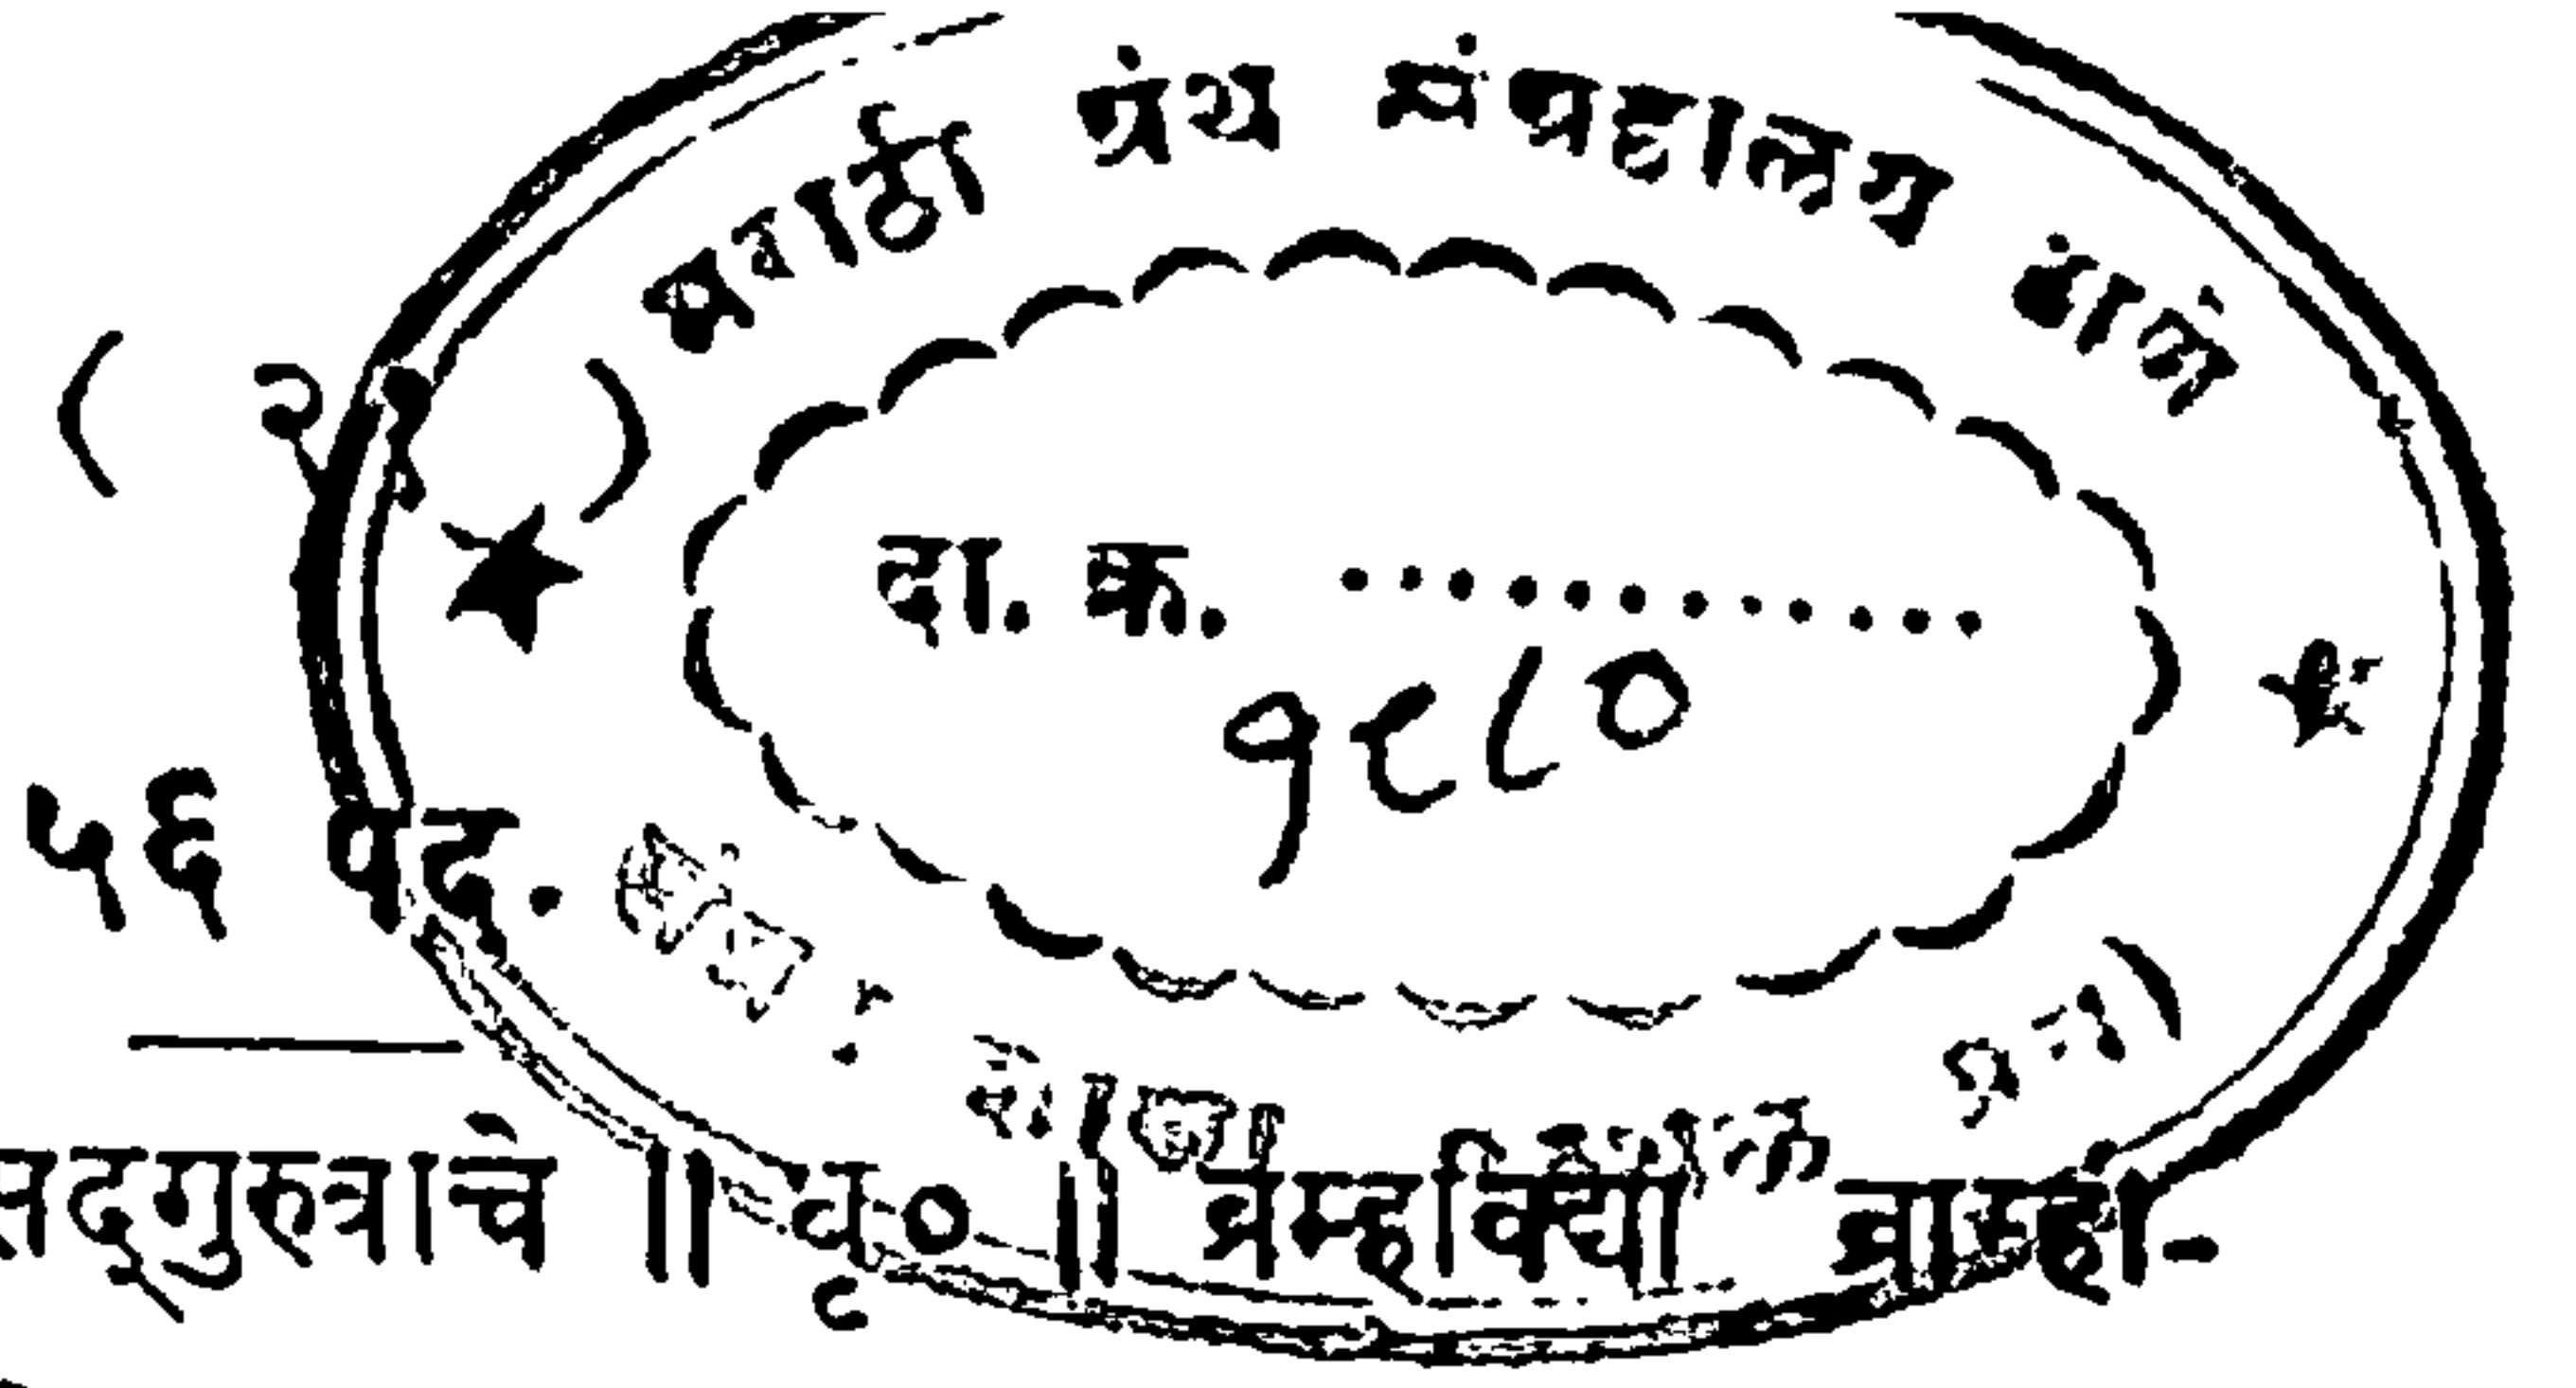 मराठी ग्रंथ संग्रहालय ठाणें
( २१ )
दा. क्र. ............
१९८०
५६ पद.
सद्‌गुरुत्राचे ॥ धृ० ॥ ब्रम्हविद्या ब्राम्ही-